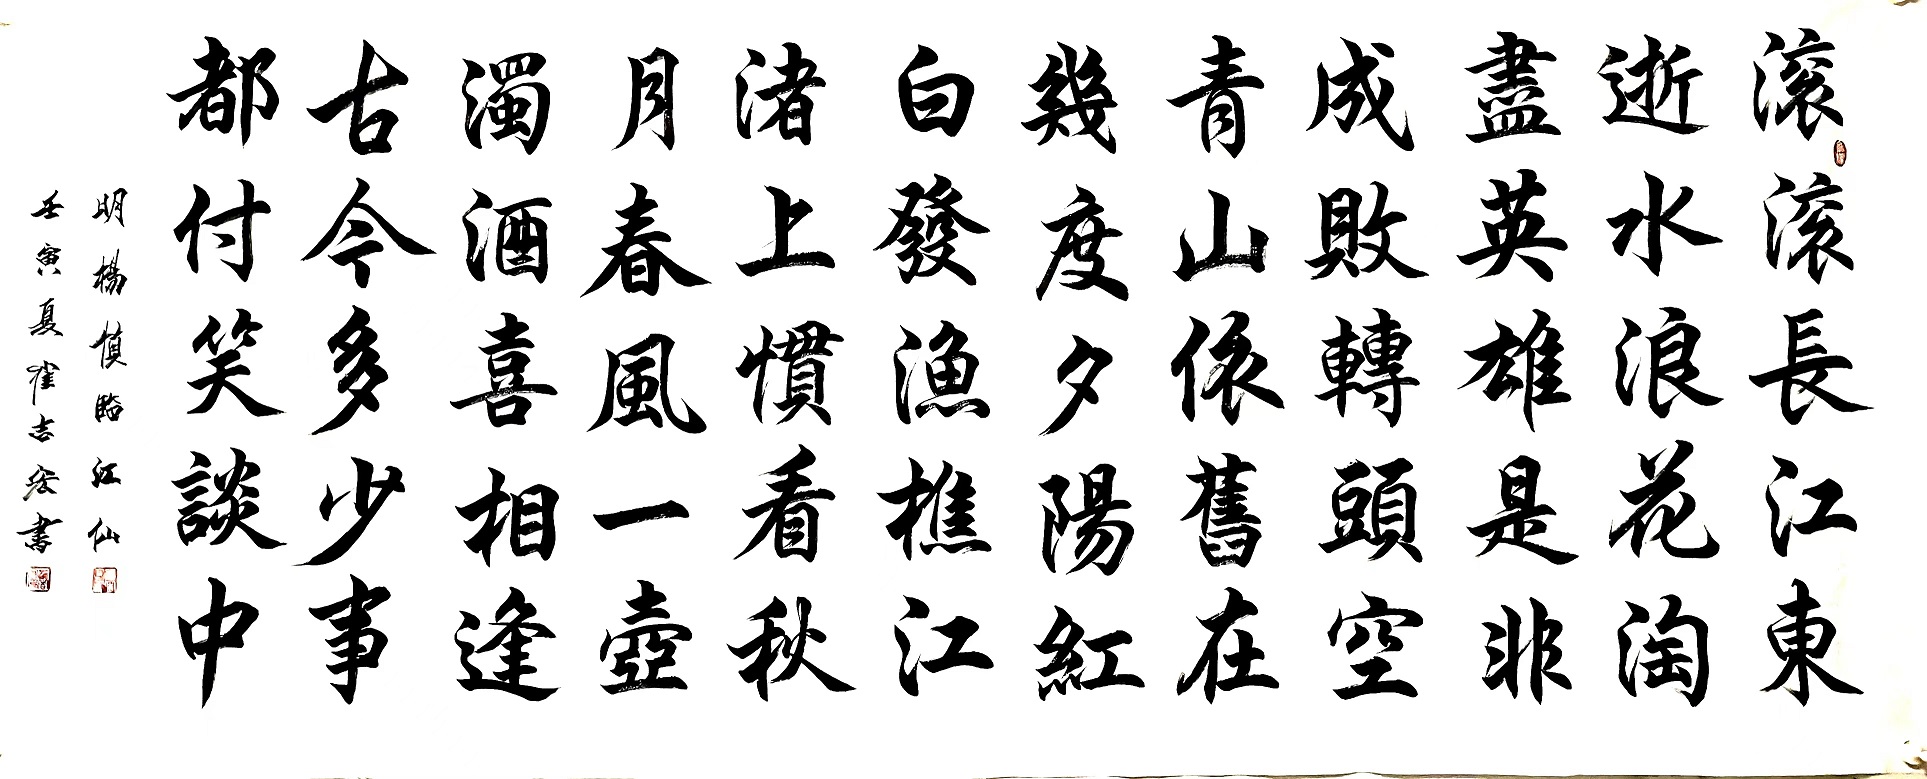 滚滚長江東
逝水浪花淘
盡英雄是非
成敗轉頭空
青山依舊在
幾度夕陽紅
白發漁樵江
渚上慣看秋
月春風一壺
濁酒喜相逢
古今多少事
都付笑談中
明楊慎臨江仙
壬寅夏崔吉書